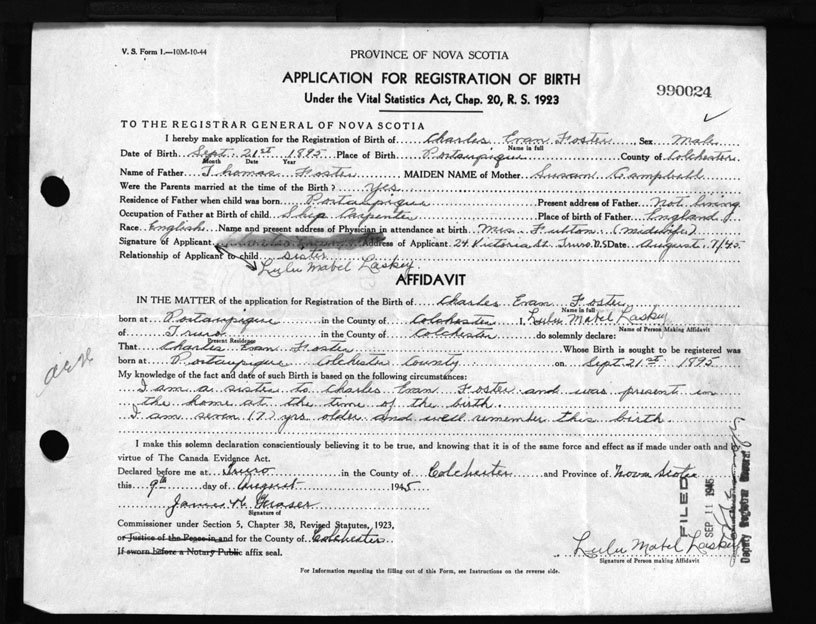 V. S. Form 1.—10M-10-44
PROVINCE OF NOVA SCOTIA
APPLICATION FOR REGISTRATION OF BIRTH
Under the Vital Statistics Act, Chap. 20, R. S. 1923
990024
TO THE REGISTRAR GENERAL OF NOVA SCOTIA
I hereby make application for the Registration of Birth of Charles Evan Foster Sex Male
Name in full
Date of Birth Sept. 21st 1895 Place of Birth Portaupique County of Colchester
Month Date Year
Name of Father Thomas Foster MAIDEN NAME of Mother Susan Campbell
Were the Parents married at the time of the Birth? yes
Residence of Father when child was born Portaupique Present address of Father Not living
Occupation of Father at Birth of child Ship Carpenter Place of birth of Father England
Race English Name and present address of Physician in attendance at birth Mrs. Fulton (midwife)
Signature of Applicant Address of Applicant 24 Victoria St. Truro. N.S Date August 7/45
Relationship of Applicant to child sister
Lulu Mabel Laskey
AFFIDAVIT
IN THE MATTER of the application for Registration of the Birth of Charles Evan Foster
Name in full
born at Portaupique in the County of Colchester I, Lulu Mabel Laskey
Name of Person Making Affidavit
of Truro in the County of Colchester do solemnly declare:
Present Residence
That Charles Evan Foster Whose Birth is sought to be registered was
born at Portaupique Colchester County on Sept. 21st 1895
My knowledge of the fact and date of such Birth is based on the following circumstances:
I am a sister to Charles Evan Foster and was present in
the home at the time of the birth.
I am seven (7) yrs older and well remember this birth.
I make this solemn declaration conscientiously believing it to be true, and knowing that it is of the same force and effect as if made under oath and by
virtue of The Canada Evidence Act.
Declared before me at Truro in the County of Colchester and Province of Nova Scotia
this 9th day of August 1945
Signature of
Commissioner under Section 5, Chapter 38, Revised Statutes, 1923,
or Justice of the Peace in and for the County of Colchester
If sworn before a Notary Public affix seal.
Lulu Mabel Laskey
Signature of Person making Affidavit
FILED
SEP 11 1945
Deputy Registrar General
For Information regarding the filling out of this Form, see Instructions on the reverse side.